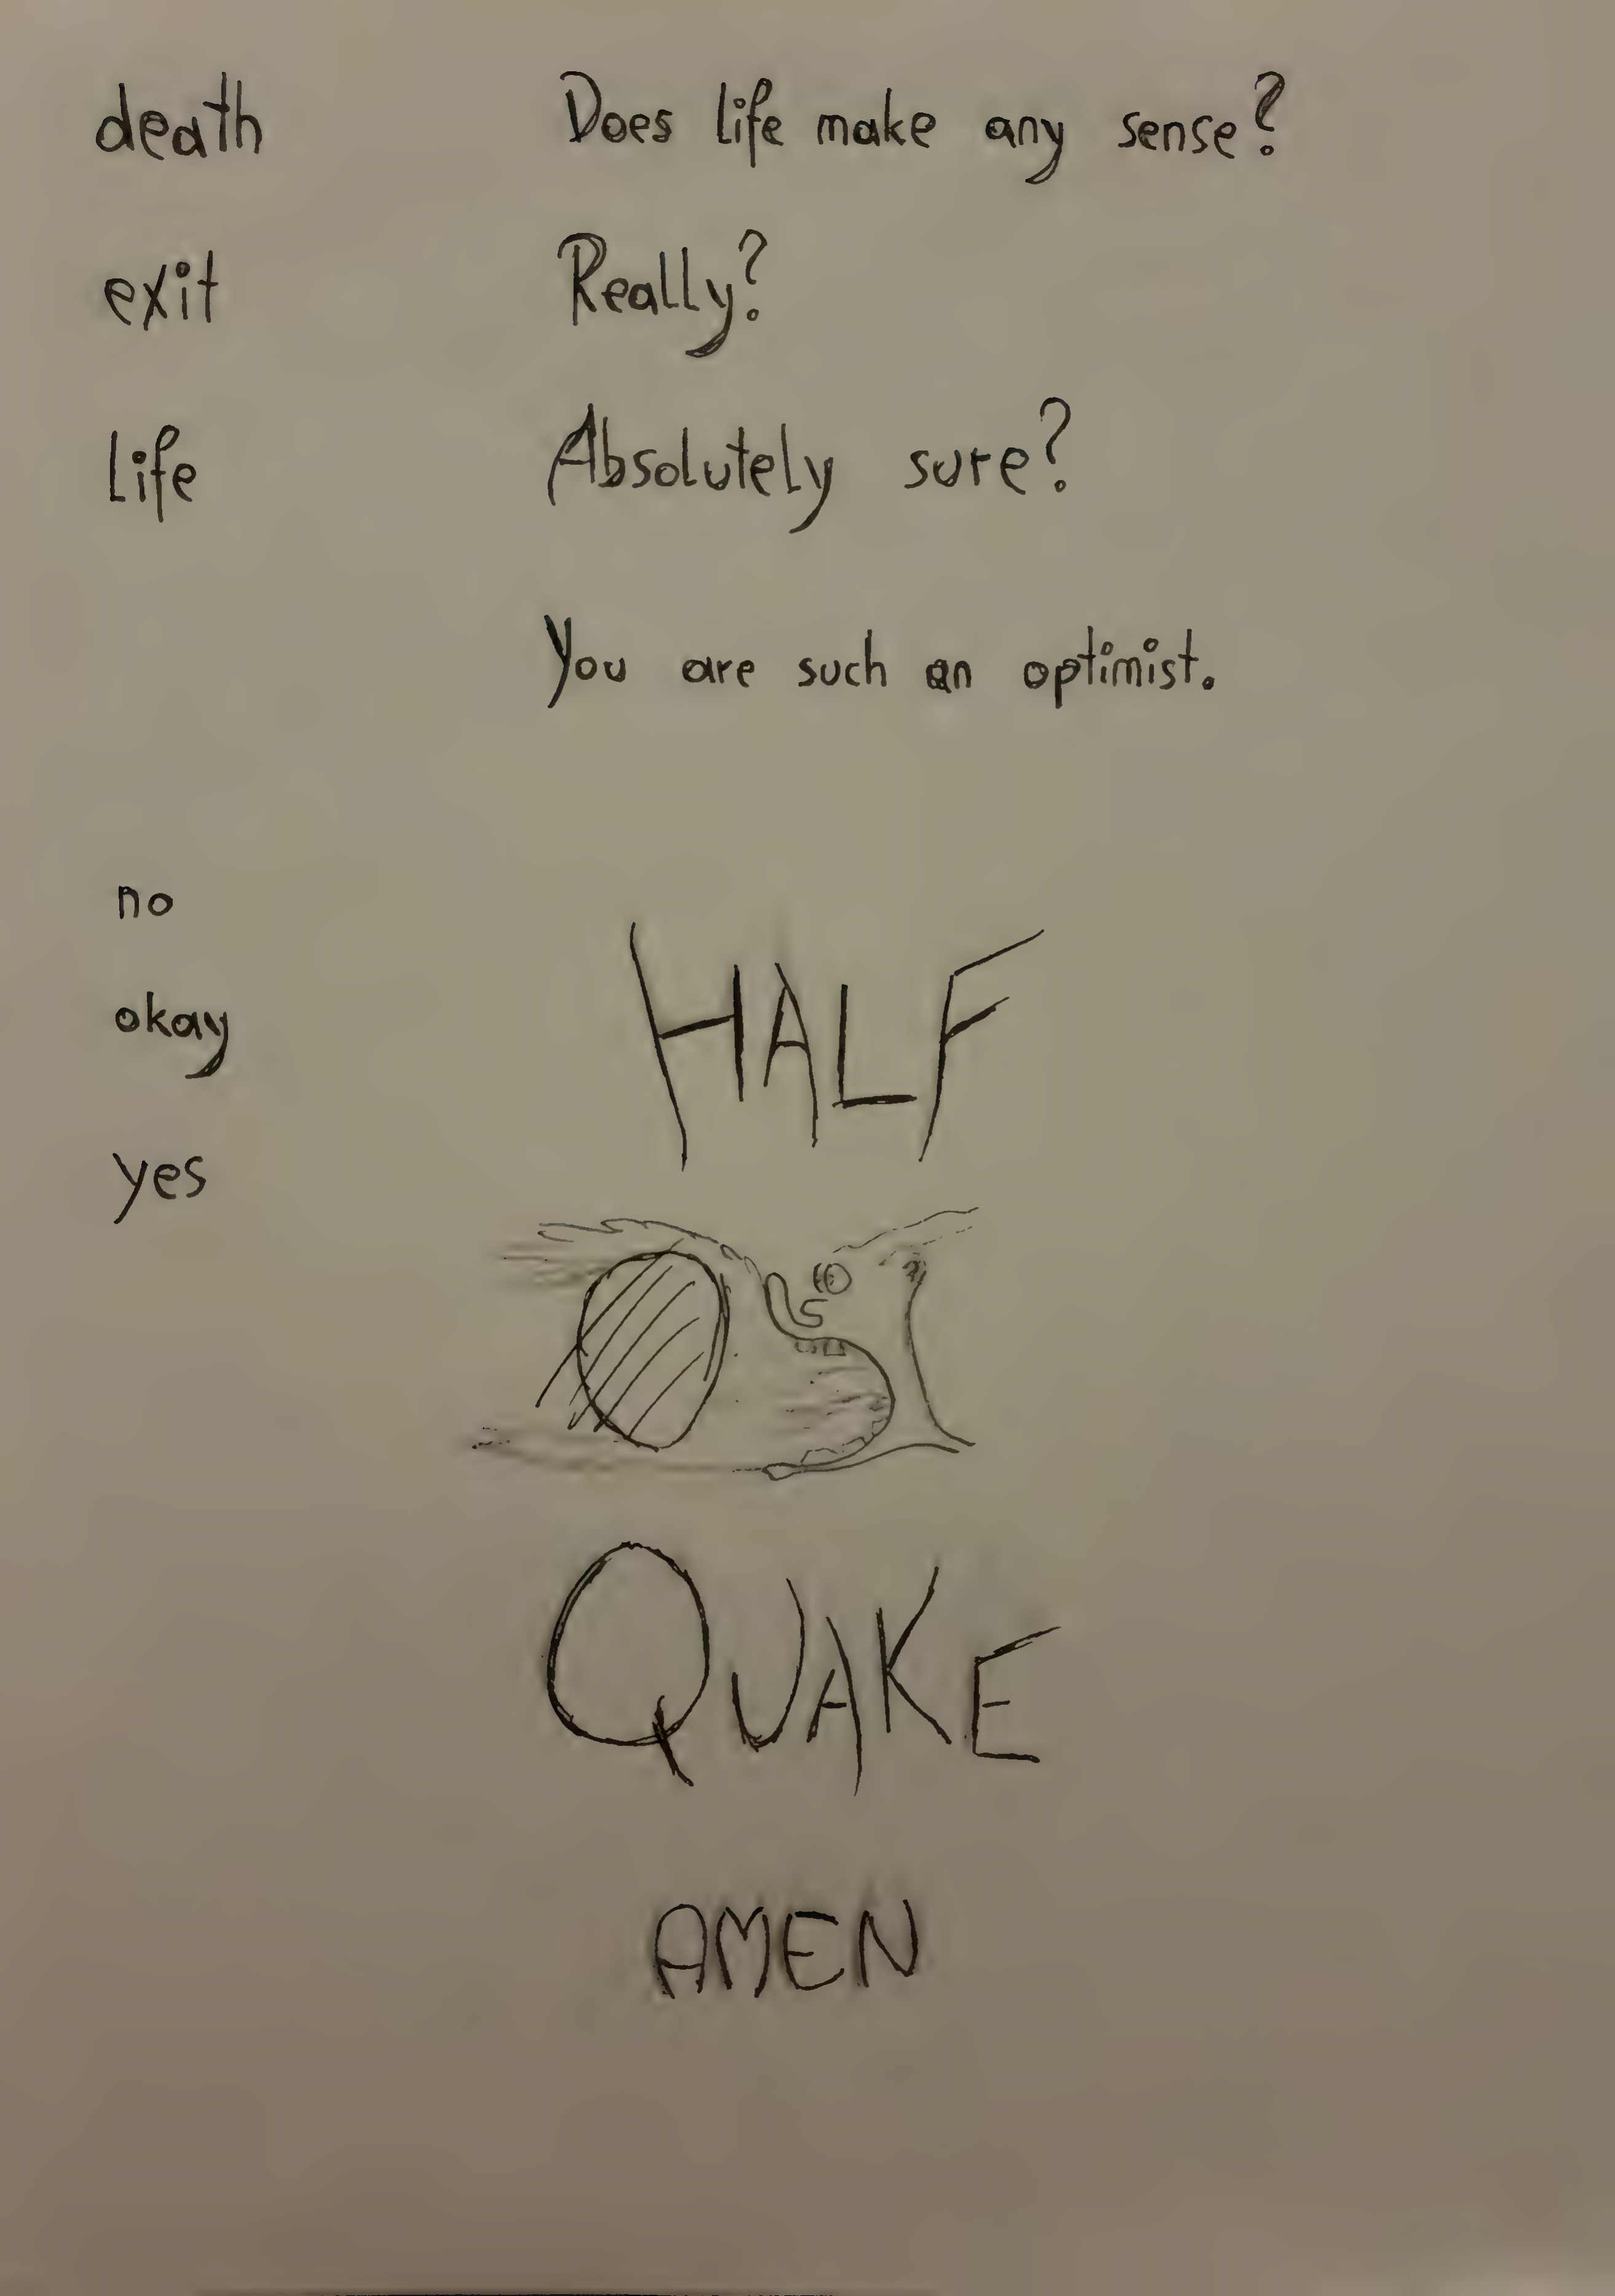 death
exit
life
Does life make any sense?
Really?
Absolutely sure?
You are such an optimist.
no
okay
yes
HALF
QUAKE
AMEN